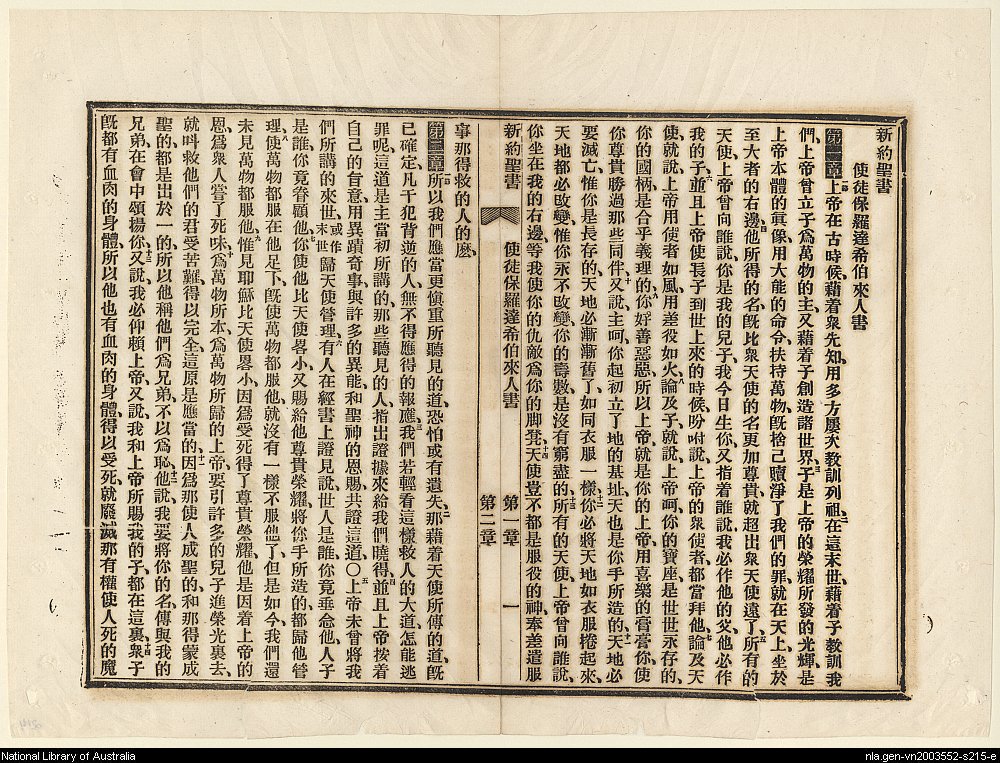 新約聖書
使徒保羅達希伯來人書
第一章上帝在古時候、藉着衆先知、用多方屢次教訓列祖、二在這末世、藉着子教訓我
們、上帝曾立子爲萬物的主、又藉着子創造諸世界、三子是上帝的榮耀所發的光輝、是
上帝本體的眞像、用大能的命令、扶持萬物、旣捨己贖淨了我們的罪、就在天上、坐於
至大者的右邊、四他所得的名、旣比衆天使的名更加尊貴、就超出衆天使遠了、五所有的
天使、上帝曾向誰說、你是我的兒子、我今日生你、又指着誰說、我必作他的父、他必作
我的子、六並且上帝使長子到世上來的時候、吩咐說、上帝的衆使者、都當拜他、七論及天
使、就說、上帝用使者如風、用差役如火、八論及子、就說、上帝呵、你的寶座、是世世永存的、
你的國柄、是合乎義理的、九你好善惡惡、所以上帝、就是你的上帝、用喜樂的膏膏你、使
你尊貴勝過那些同伴、十又說、主呵、你起初立了地的基址、天也是你手所造的、十一天地必
要滅亡、惟你是長存的、天地必漸漸舊了、如同衣服一樣、十二你必將天地如衣服捲起來、
天地都必改變、惟你永不改變、你的壽數、是沒有窮盡的、十三所有的天使、上帝曾向誰說、
你坐在我的右邊、等我使你的仇敵爲你的脚凳、十四天使豈不都是服役的神、奉差遣服
新約聖書 使徒保羅達希伯來人書 第一章 第二章 一
事那得救的人的麽、
第二章所以我們應當更愼重所聽見的道、恐怕或有遺失、二那藉着天使所傳的道、旣
已確定、凡干犯背逆的人、無不得應得的報應、三我們若輕看這樣救人的大道、怎能逃
罪呢、這道是主當初所講的、那些聽見的人、指出證據來、給我們曉得、四並且上帝按着
自己的旨意、用異蹟奇事與許多的異能、和聖神的恩賜、共證這道、〇五上帝未曾將我
們所講的來世、或作末世歸天使管理、六有人在經書上證見說、世人是誰、你竟垂念他、人子
是誰、你竟眷顧他、七你使他比天使畧小、又賜給他尊貴榮耀、將你手所造的、都歸他管
理、八使萬物都服在他足下、旣使萬物都服他、就沒有一樣不服他了、但是如今我們還
未見萬物都服他、九惟見耶穌比天使畧小、因爲受死得了尊貴榮耀、他是因着上帝的
恩、爲衆人嘗了死味、十爲萬物所本、爲萬物所歸的上帝、要引許多的兒子進榮光裏去、
就叫救他們的君受苦難、得以完全、這原是應當的、十一因爲那使人成聖的、和那得蒙成
聖的、都是出於一的、所以他稱他們爲兄弟、不以爲恥、十二他說、我要將你的名傳與我的
兄弟、在會中頌揚你、十三又說、我必仰賴上帝、又說、我和上帝所賜我的子都在這裏、十四衆子
旣都有血肉的身體、所以他也有血肉的身體、得以受死、就廢滅那有權使人死的魔
National Library of Australia
nla.gen-vn2003552-s215-e